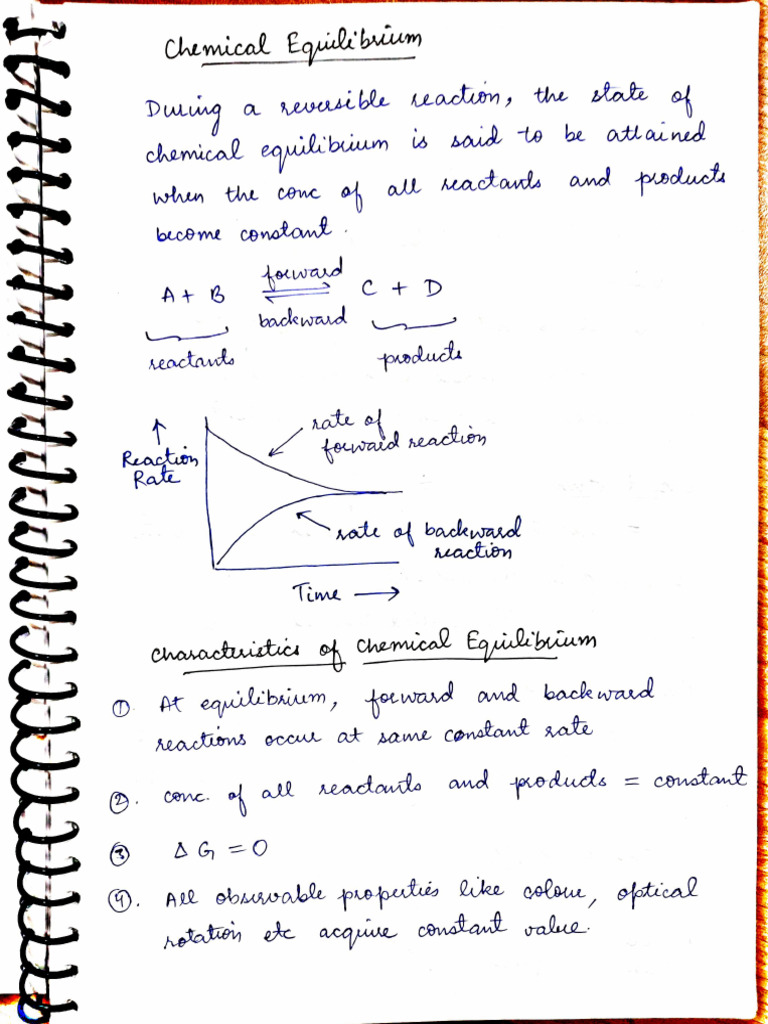 Chemical Equilibrium
During a reversible reaction, the state of
chemical equilibrium is said to be attained
when the conc of all reactants and products
become constant.
forward
A + B ⇌ C + D
backward
reactants products
↑
Reaction
Rate
rate of
forward reaction
rate of backward
reaction
Time →
Characteristics of Chemical Equilibrium
① At equilibrium, forward and backward
reactions occur at same constant rate
②. conc. of all reactants and products = constant
③ ΔG = 0
④. All observable properties like colour, optical
rotation etc acquire constant value.